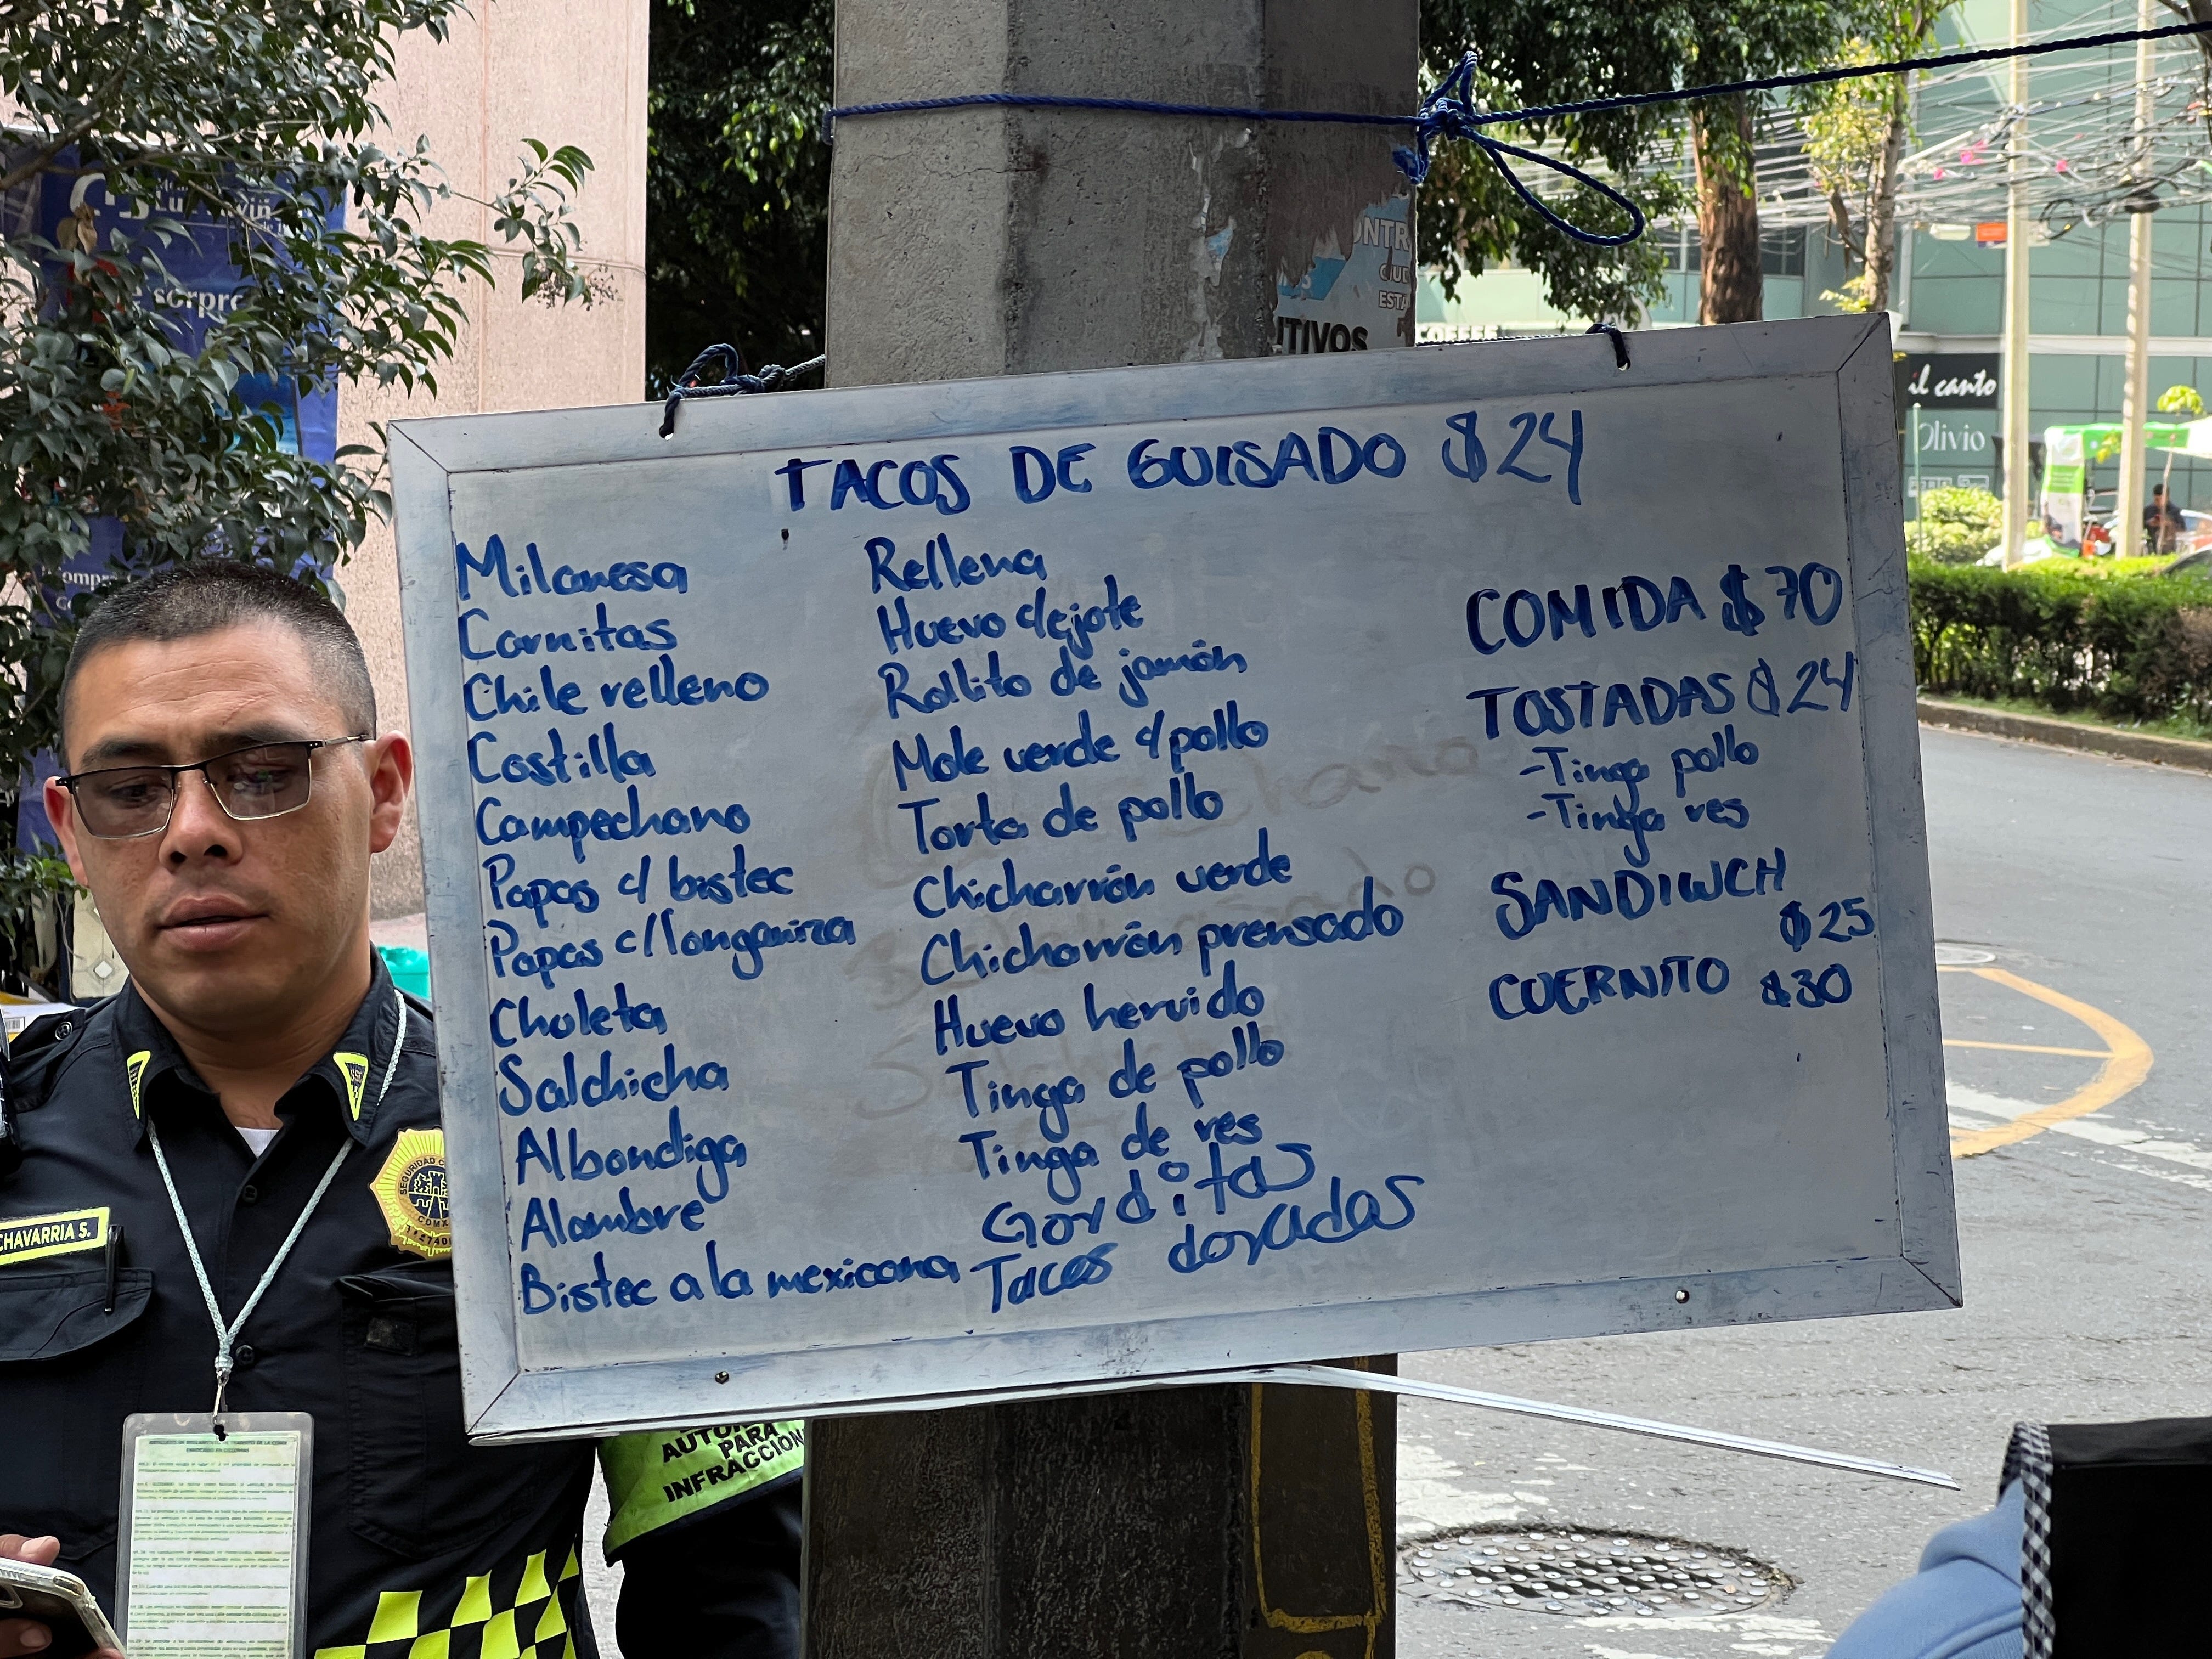 TACOS DE GUISADO $24
Milanesa
Carnitas
Chile relleno
Costilla
Campechano
Papas c/ bistec
Papas c/longaniza
Chuleta
Salchicha
Albondiga
Alambre
Bistec a la mexicana
Rellena
Huevo c/ejote
Rollito de jamón
Mole verde c/pollo
Torta de pollo
Chicharrón verde
Chicharrón prensado
Huevo hervido
Tinga de pollo
Tinga de res
Gorditas
Tacos doradas
COMIDA $70
TOSTADAS $24
-Tinga pollo
-Tinga res
SANDIWCH
$25
CUERNITO $30
il canto
Olivio
ITIVOS
CHAVARRIA S.
SEGURIDAD
CDMX
PARA
INFRACCION